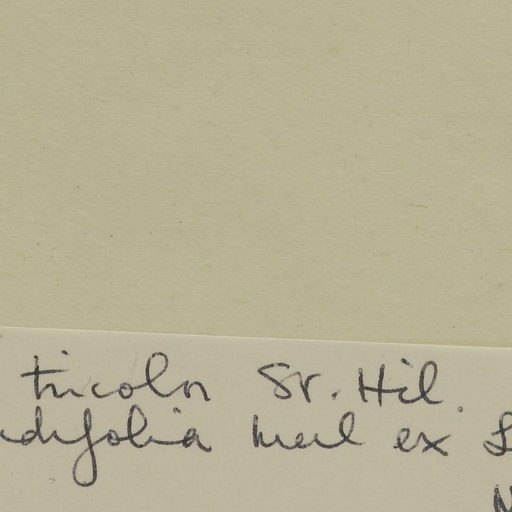 tricolor St. Hil.
difolia Meul ex